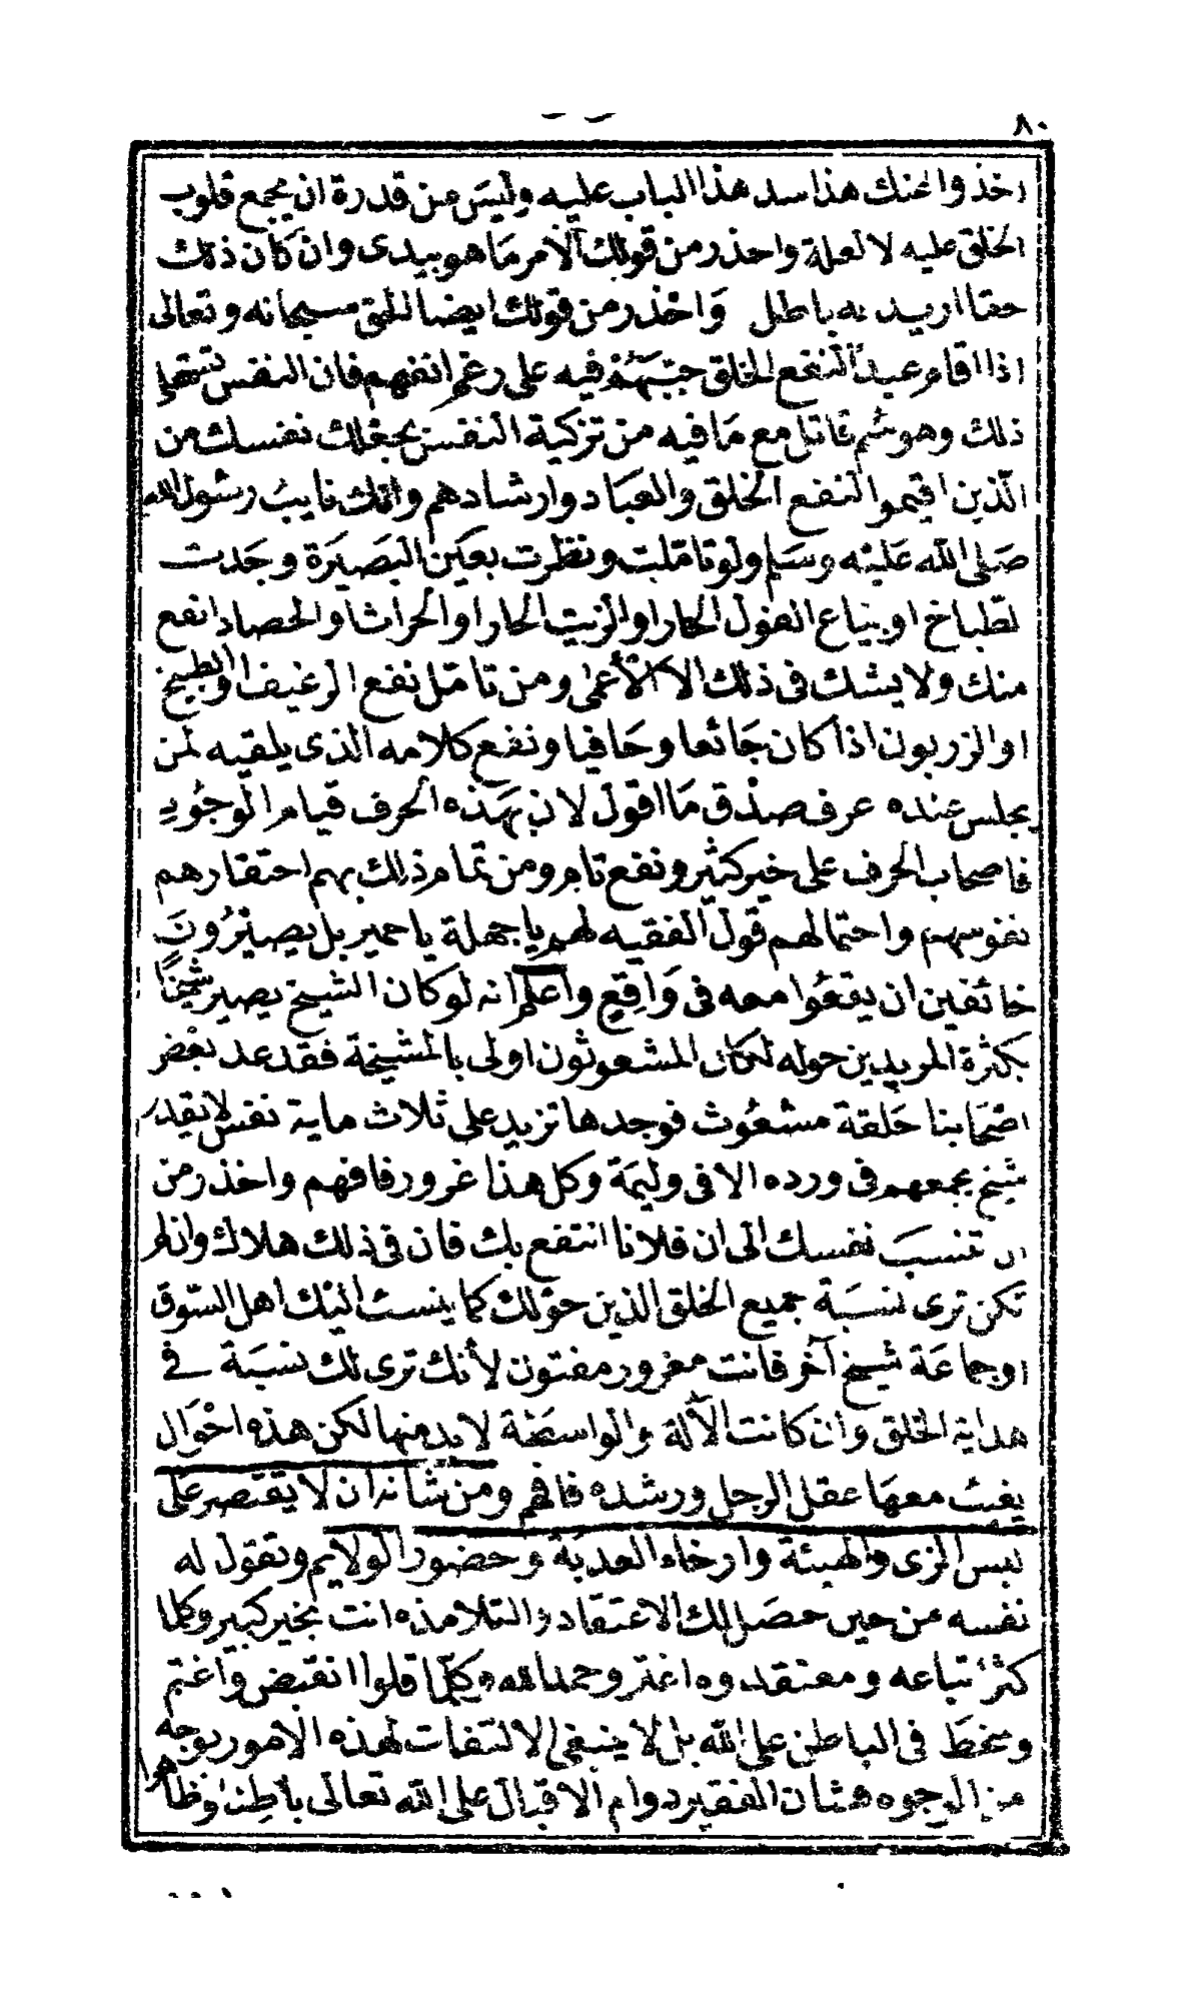 ٨٠
اخذوا عنك هذا سد هذا الباب عليه وليس من قدرة ان يجمع قلوب
الخلق عليه لا لعلة واحذر من قولك الامر ما هو بيدى وان كان ذلك
حقا اريد به باطل واحذر من قولك ايضا الحق سبحانه وتعالى
اذا اقام عبدا لنفع الخلق حببهم فيه على رغم انفهم فان النفس تشتهى
ذلك وهو سم قاتل مع ما فيه من تزكية النفس بجعلك نفسك من
الذين اقيموا لنفع الخلق والعباد وارشادهم وانك نايب رسول الله
صلى الله عليه وسلم ولو تاملت ونظرت بعين البصيرة وجدت
لطباخ او بياع الفول الحار او الزيت الحار او الحراث او الحصاد انفع
منك ولا يشك فى ذلك الا الأعمى ومن تامل نفع الرغيف او الطبيخ
او الزربون اذا كان جائعا وحافيا ونفع كلامه الذى يلقيه لمن
يجلس عنده عرف صدق ما اقول لان بهذه الحرف قيام الوجود
فاصحاب الحرف على خير كثير ونفع تام ومن تمام ذلك بهم احتقارهم
نفوسهم واحتمالهم قول الفقيه لهم يا جهلة يا حمير بل يصيرون
خائفين ان يقعوا معه فى واقع واعلم انه لو كان الشيخ يصير شيخا
بكثرة المريدين حوله لكان المشعوثون اولى بالمشيخة فقد عد بعض
اصحابنا حلقة مشعوث فوجدها تزيد على ثلاث ماية نفس لا يقدر
شيخ يجمعهم فى ورده الا فى وليمة وكل هذا غرور فافهم واحذر من
ان تنسب نفسك الى ان فلانا انتفع بك فان فى ذلك هلاك وان لم
تكن ترى نسبة جميع الخلق الذين حولك كما ينسب اليك اهل السوق
او جماعة شيخ آخر فانت مغرور مفتون لأنك ترى لك نسبة فى
هداية الخلق وان كانت الآلة والواسطة لا بد منها لكن هذه احوال
يغيب معها عقل الرجل ورشده فافهم ومن شانه ان لا يقتصر على
لبس الزى والهيئة وارخاء العذبة وحضور الولايم وتقول له
نفسه من حين حصل لك الاعتقاد والتلامذه انت بخير كبير وكلما
كثر اتباعه ومعتقدوه اغتر وحمد الله وكلما قلوا انقبض واغتم
وسخط فى الباطن على الله بل لا ينبغى الالتفات لهذه الامور بوجه
من الوجوه فشان الفقير دوام الاقبال على الله تعالى باطنا وظاهرا